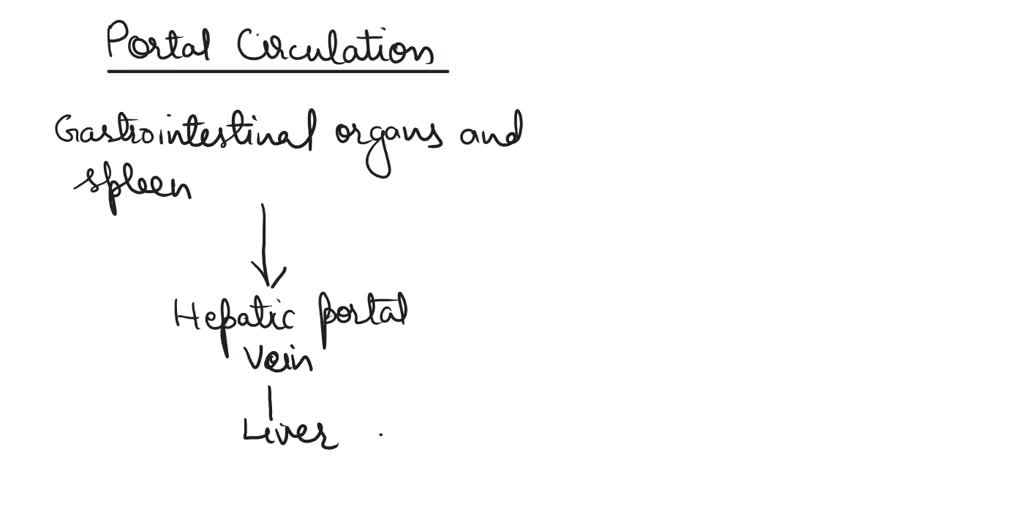 Portal Circulation
Gastrointestinal organs and
spleen
Hepatic portal
vein
Liver